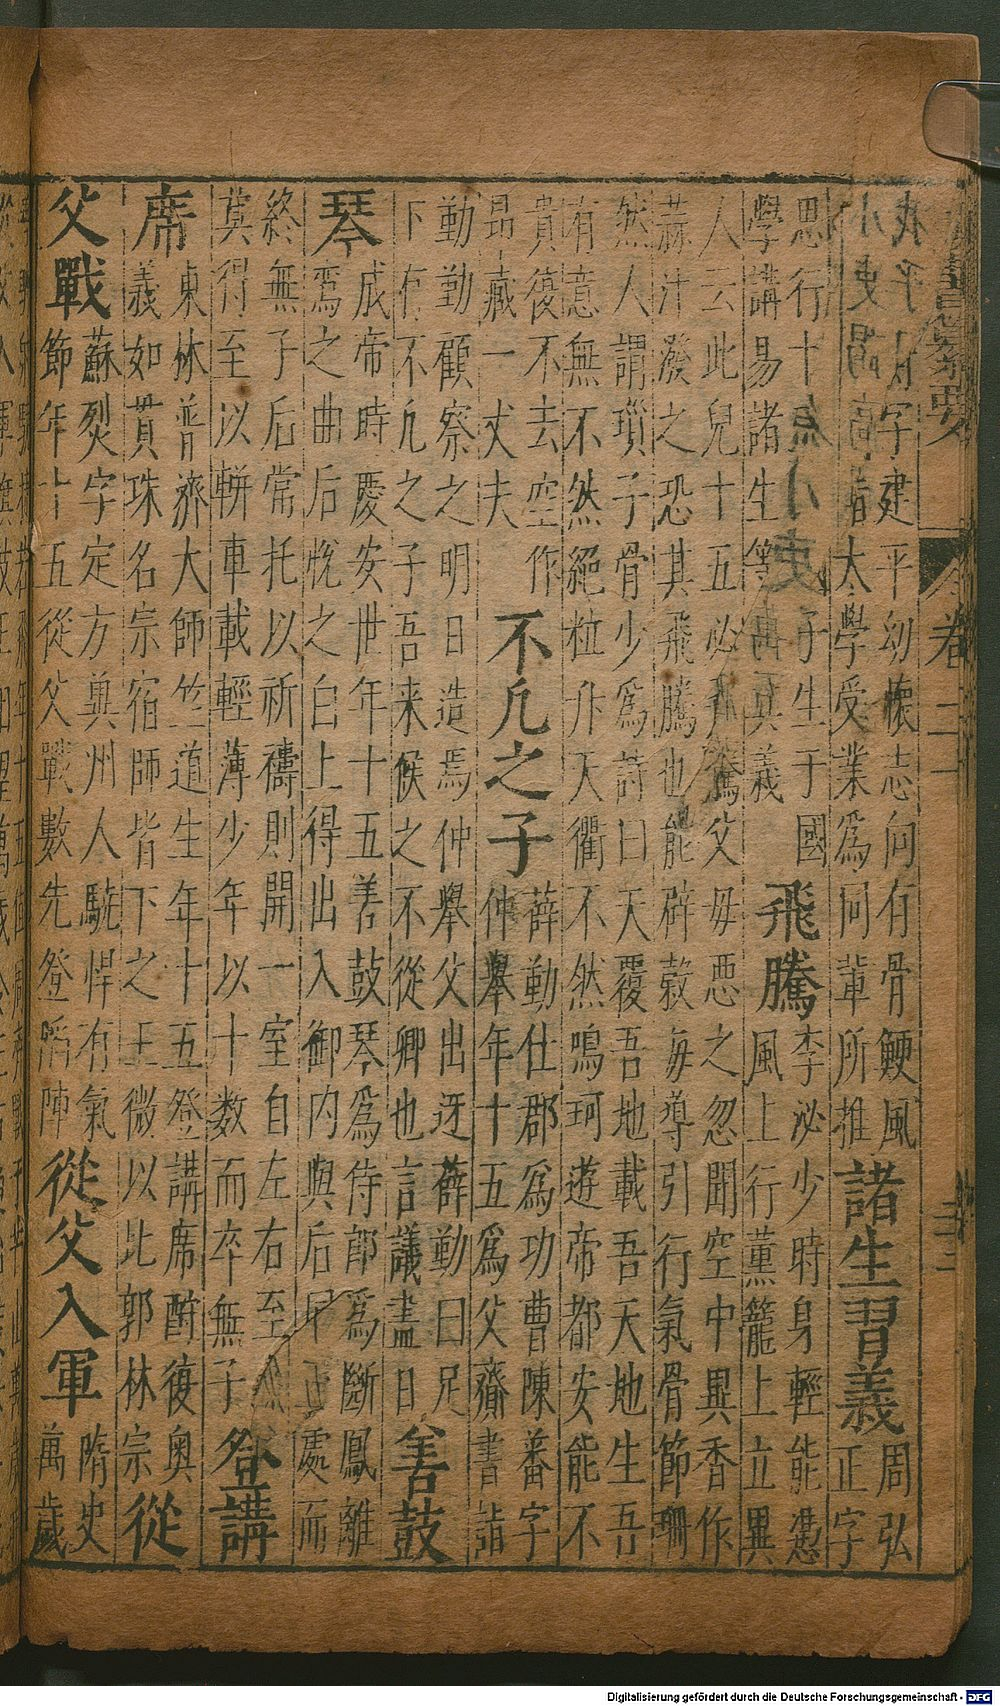 卷二
字建平幼懷志向有骨鯁風
太學受業為同輩所推
諸生習義
周弘
正字
思行十
子生于國
學講易諸生等
其義
飛騰
李泌少時身輕能憑
風上行薰籠上立異
人云此兒十五必升騰父母惡之忽聞空中異香作
蒜汁潑之恐其飛騰也能辟穀每導引行氣骨節珊
然人謂瑣子骨少為詩曰天覆吾地載吾天地生吾
有意無不然絕粒升天衢不然鳴珂遊帝都安能不
貴復不去空作
昂藏一丈夫
不凡之子
薛勤仕郡為功曹陳蕃字
仲舉年十五為父齎書詣
勤勤顧察之明日造焉仲舉父出迓薛勤曰足
下有不凡之子吾来候之不從卿也言議盡日
善鼓
琴
成帝時慶安世年十五善鼓琴為侍郎為斷鳳離
鸞之曲后悅之白上得出入御內與后居止處而
終無子后常托以祈禱則開一室自左右至
莫得至以軿車載輕薄少年以十數而卒無子
登講
席
東林普濟大師竺道生年十五登講席酧復奧
義如貫珠名宗宿師皆下之王微以比郭林宗
從
父戰
蘇烈字定方冀州人驍悍有氣
節年十五從父戰數先登陷陣
從父入軍
隋史
萬歲
Digitalisierung gefördert durch die Deutsche Forschungsgemeinschaft - DFG